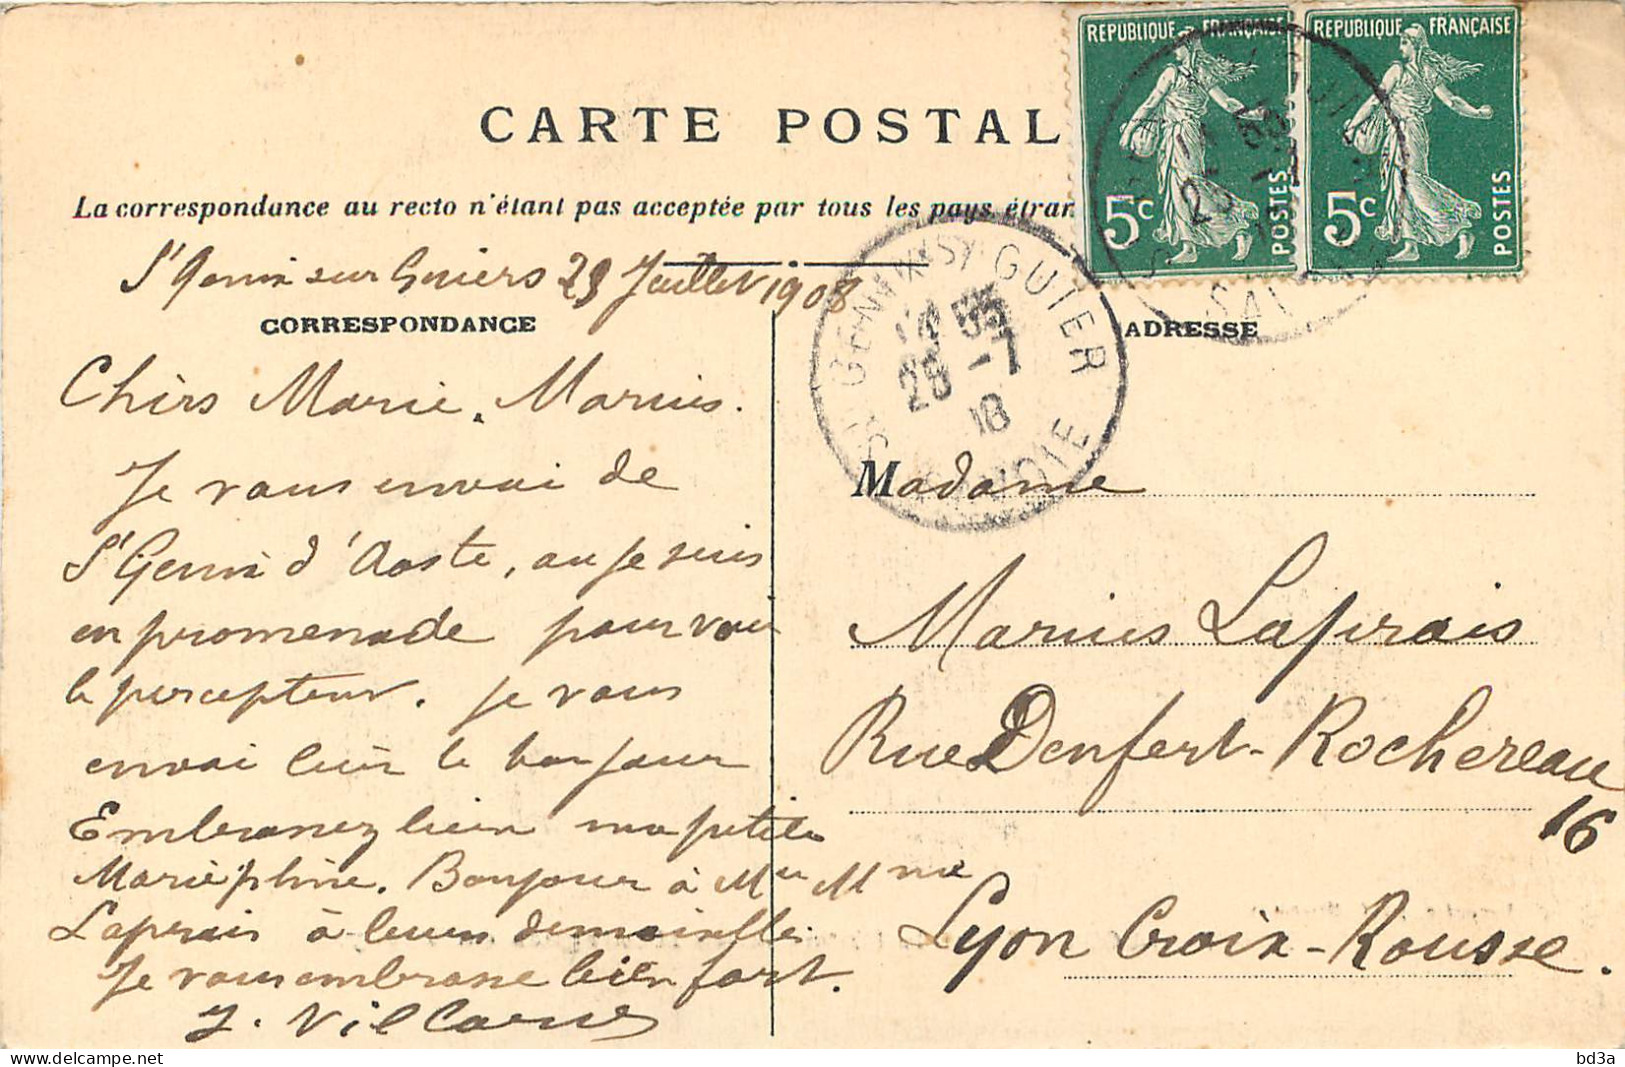 CARTE POSTAL
La correspondance au recto n'étant pas acceptée par tous les pays étran
REPUBLIQUE FRANÇAISE
5c POSTES
REPUBLIQUE FRANÇAISE
5c POSTES
St GENIX SY GUIER
14 35
28 -7
SAVOIE
St Genix sur Guiers 29 Juillet 1908
CORRESPONDANCE
ADRESSE
Chèrs Marie, Marius.
Je vous envoi de
St Genix d'Aoste, ou je suis
en promenade pour voir
le percepteur. je vous
envoi bien le bonjour
Embrassez bien ma petite
Marie phine. Bonjour à Mr Mme
Laprais à leurs demoiselles
Je vous embrasse bien fort.
J. Villarus
Madame
Marius Laprais
Rue Denfert-Rochereau
16
Lyon Croix-Rousse.
delcampe.net
bd3a